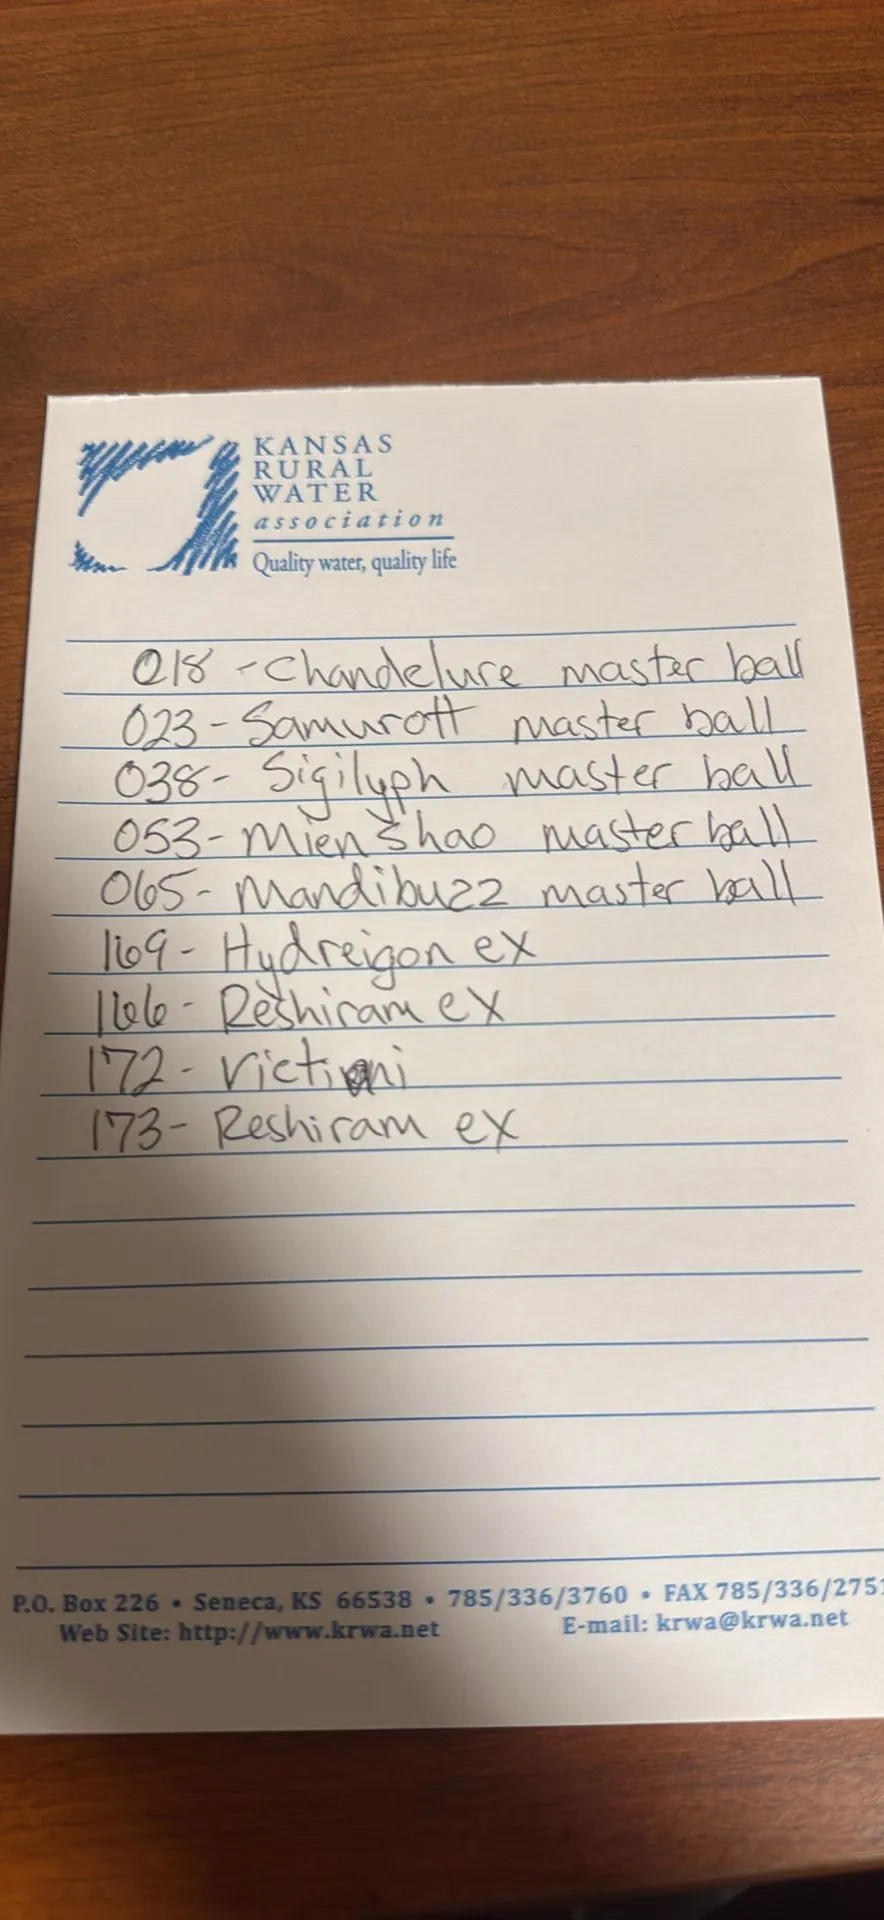 KANSAS
RURAL
WATER
association
Quality water, quality life
018 - Chandelure master ball
023 - Samurott master ball
038 - Sigilyph master ball
053 - Mienshao master ball
065 - Mandibuzz master ball
169 - Hydreigon ex
166 - Reshiram ex
172 - Victini
173 - Reshiram ex
P.O. Box 226 • Seneca, KS 66538 • 785/336/3760 • FAX 785/336/2751
Web Site: http://www.krwa.net E-mail: krwa@krwa.net